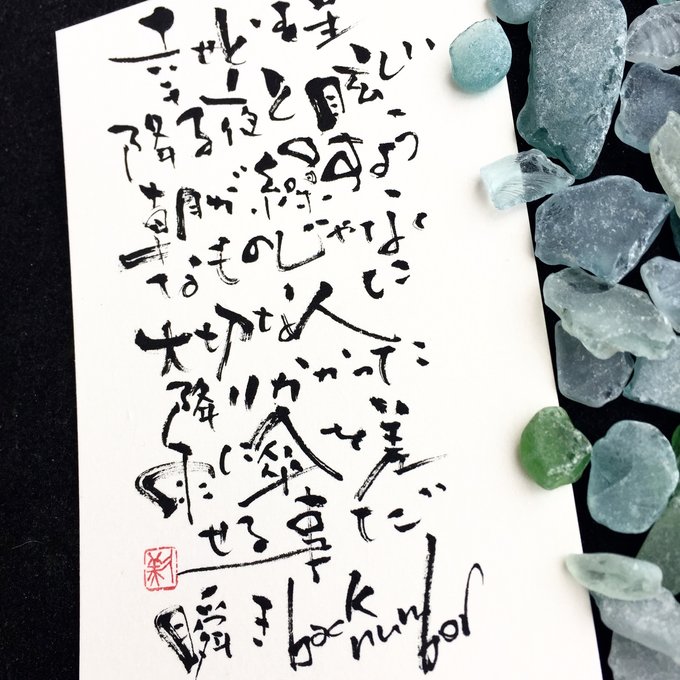 幸せとは星
が降る夜と眩しい
朝が繰り返すよう
なものじゃなく
大切な人に
降りかかった
雨に傘を差
せる事だ
瞬き back number